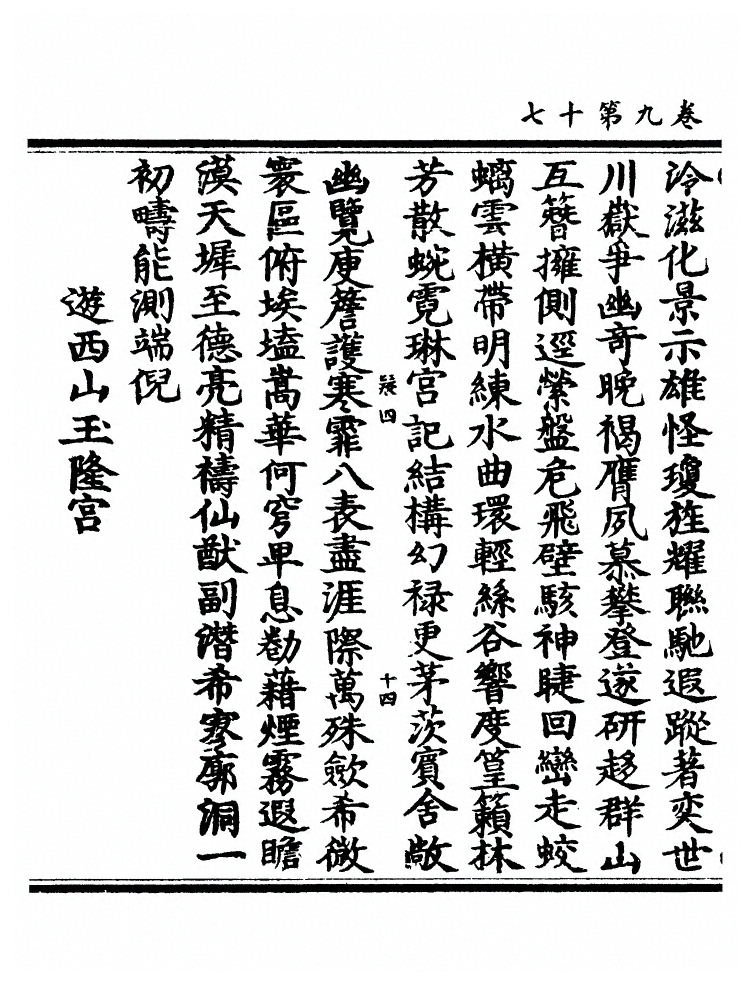 卷九第十七
泠滋化景示雄怪瓊旌耀聯馳遐蹤著奕世
川嶽爭幽奇晚褐膺夙慕攀登遂研趍群山
互簪擁側逕縈盤危飛壁駭神睫回巒走蛟
螭雲橫帶明練水曲環輕絲谷響度篁籟林
芳散蜿霓琳宮記結構幻祿更茅茨賓舍敞
疑四 十四
幽覽庚簷護寒霏八表盡涯際萬殊歛希微
寰區俯埃壒嵩華何穹卑息勌藉煙霧遐瞻
漠天墀至德亮精禱仙猷副潛希寥廓洞一
初疇能測端倪
遊西山玉隆宮